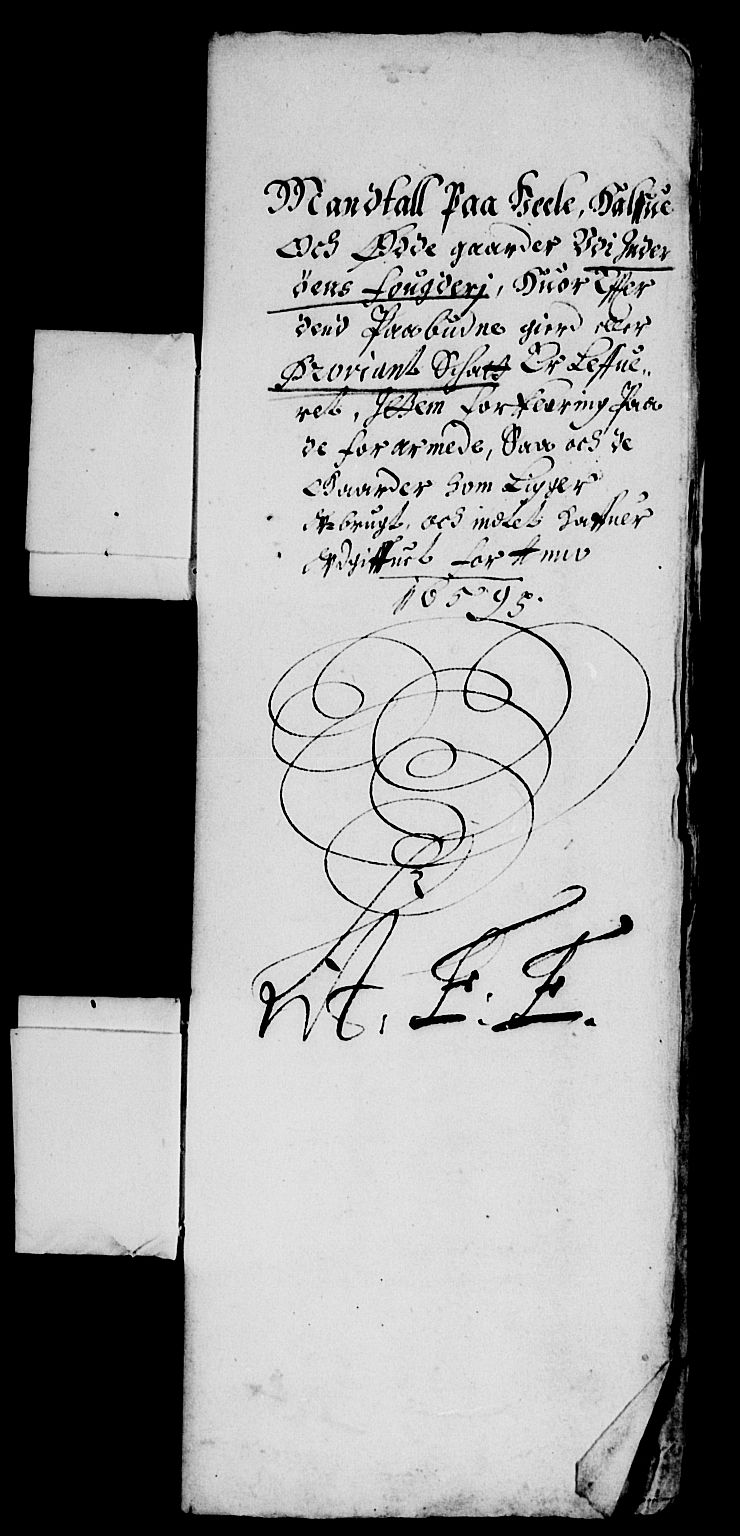 Mandtall Paa Heele, Halffue
Och Øde gaarder Vdi Inder
öens fougderj, Huor Effter
dend Paabudne gierd eller
Proviant Schatt Er Leffue„
ret, Jttem forklaring Paa
de forarmede, Saa och de
Gaarder som Ligger
Øbrugt, och indtet haffuer
Vdgiffuet for Anno
1659
Lit. F: F.